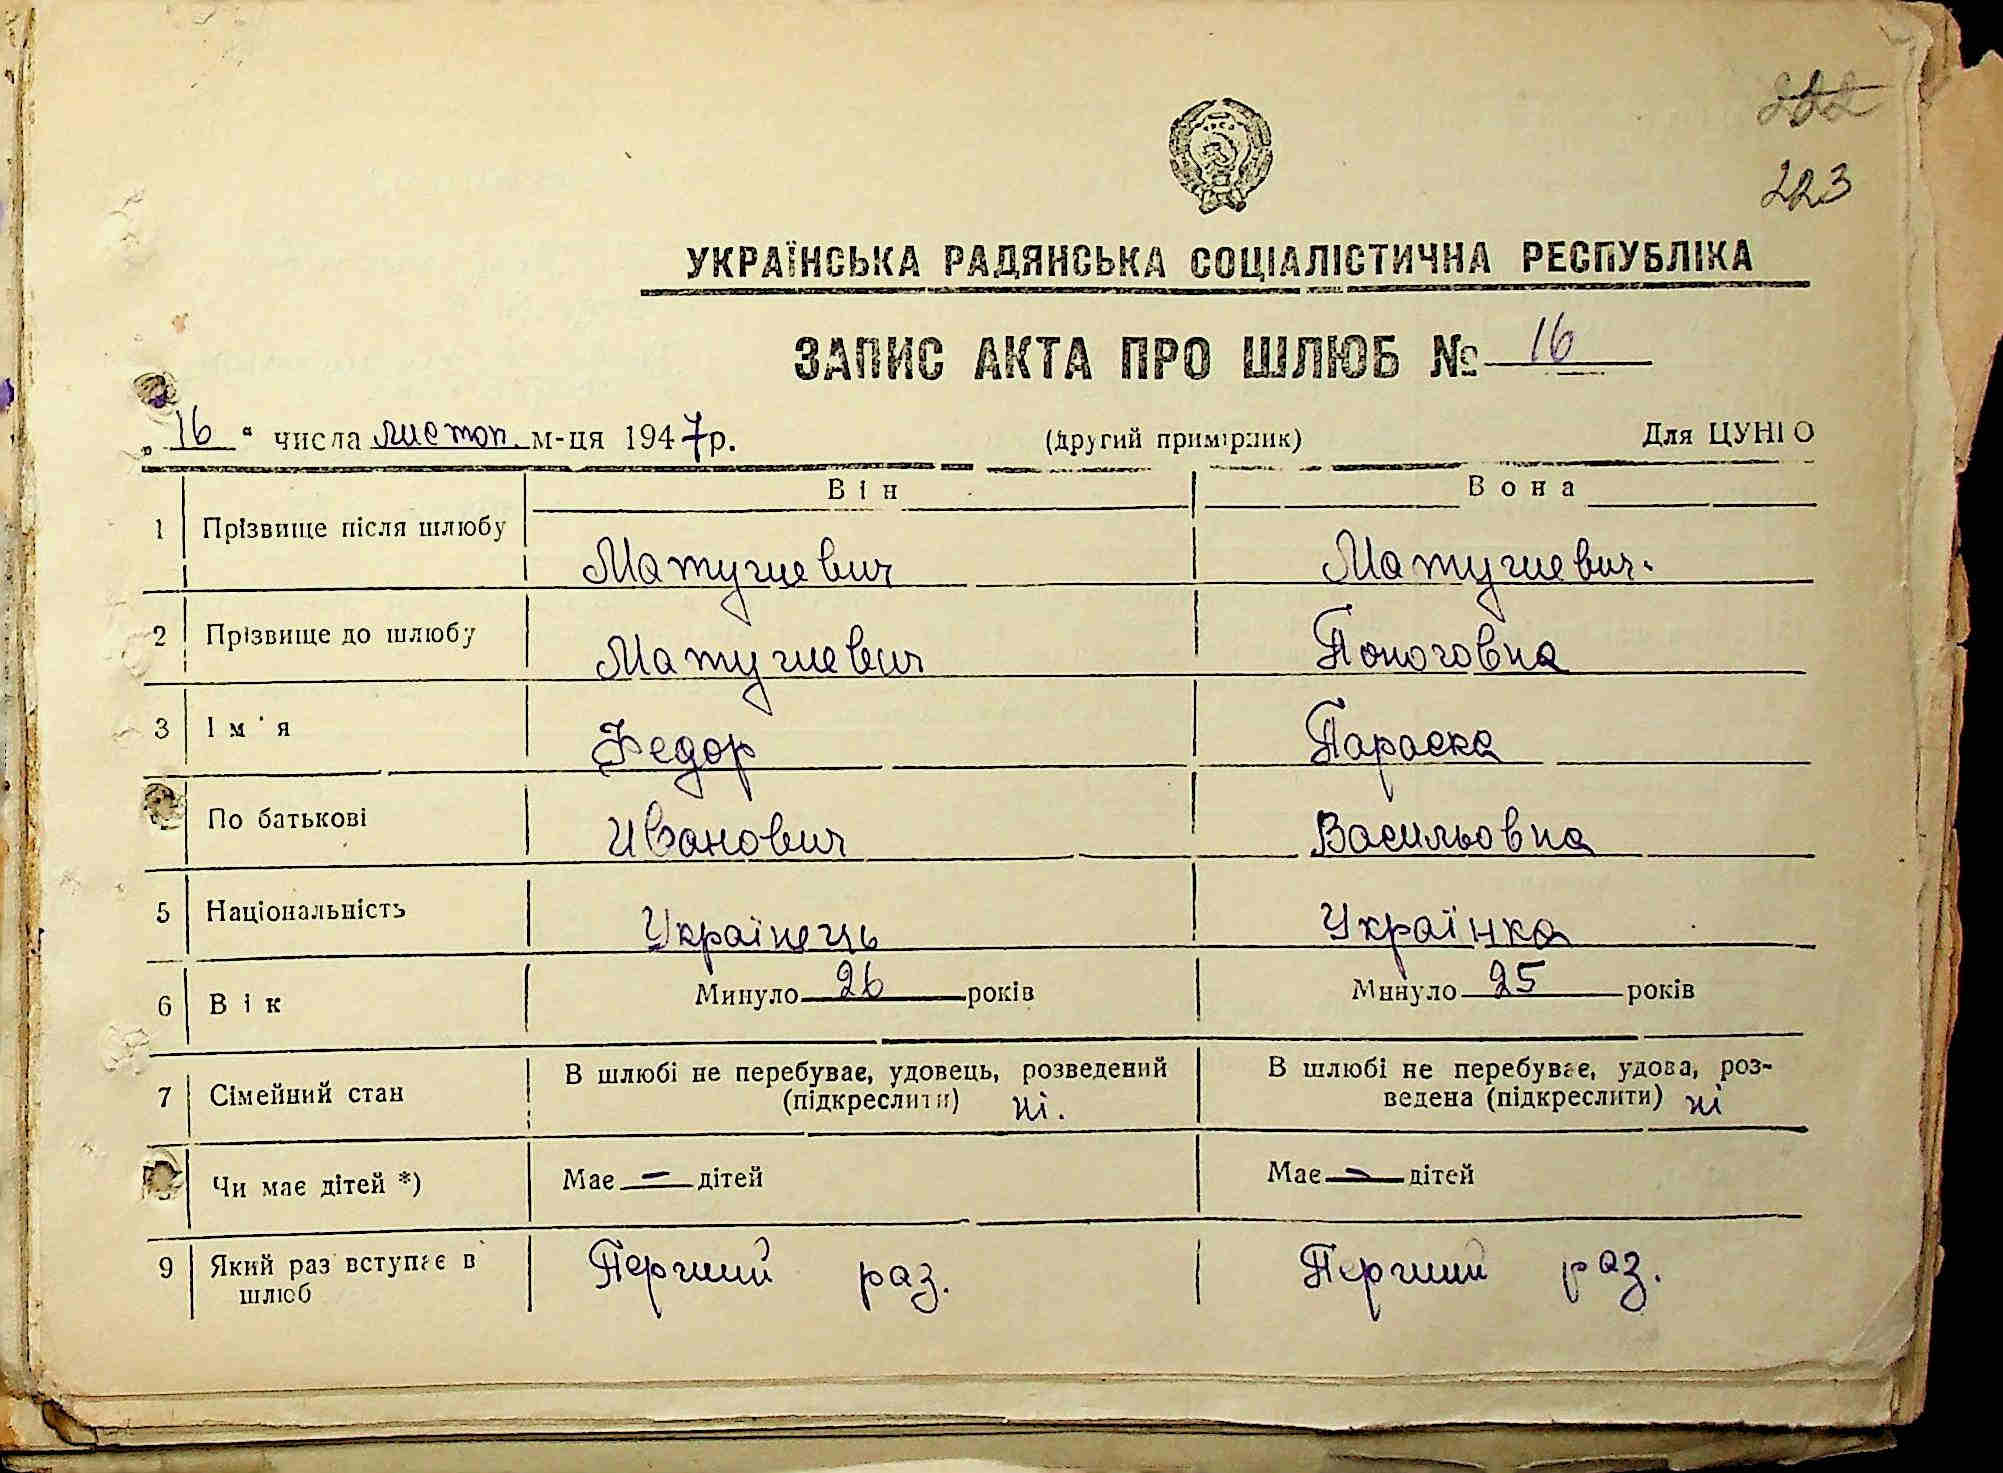 222
223
УКРАЇНСЬКА РАДЯНСЬКА СОЦІАЛІСТИЧНА РЕСПУБЛІКА
ЗАПИС АКТА ПРО ШЛЮБ № 16
„16“ числа листоп. м-ця 1947р. (другий примірник) Для ЦУНГО
Він Вона
1 Прізвище після шлюбу Матушевич Матушевич.
2 Прізвище до шлюбу Матушевич
3 Ім'я Федор Параска
По батькові Иванович Васильовна
5 Національність Українець Українка
6 Вік Минуло 26 років Минуло 25 років
7 Сімейний стан В шлюбі не перебуває, удовець, розведений (підкреслити) ні. В шлюбі не перебуває, удова, роз-
ведена (підкреслити) ні
Чи має дітей *) Має — дітей Має — дітей
9 Який раз вступає в шлюб Перший раз. Перший раз.